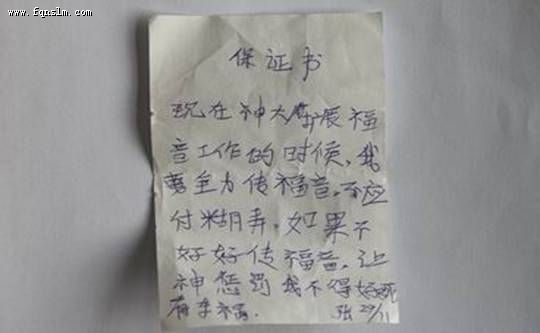 www.fgnslm.com
保证书
现在神大扩展福
音工作的时候，我
要全力传福音，不应
付糊弄，如果不
好好传福音，让
神惩罚我不得好死
有李福。 张 27/11